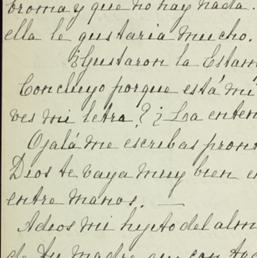 broma y que no hay nada.
ella le gustaria mucho.
¿Gustaron la Estam
Concluyo porque está mi
ves mi letra? ¿La enten
Ojalá me escribas pron
Dios te vaya muy bien e
entre manos. —
Adios mi hijito del alm
de tu madre que con to